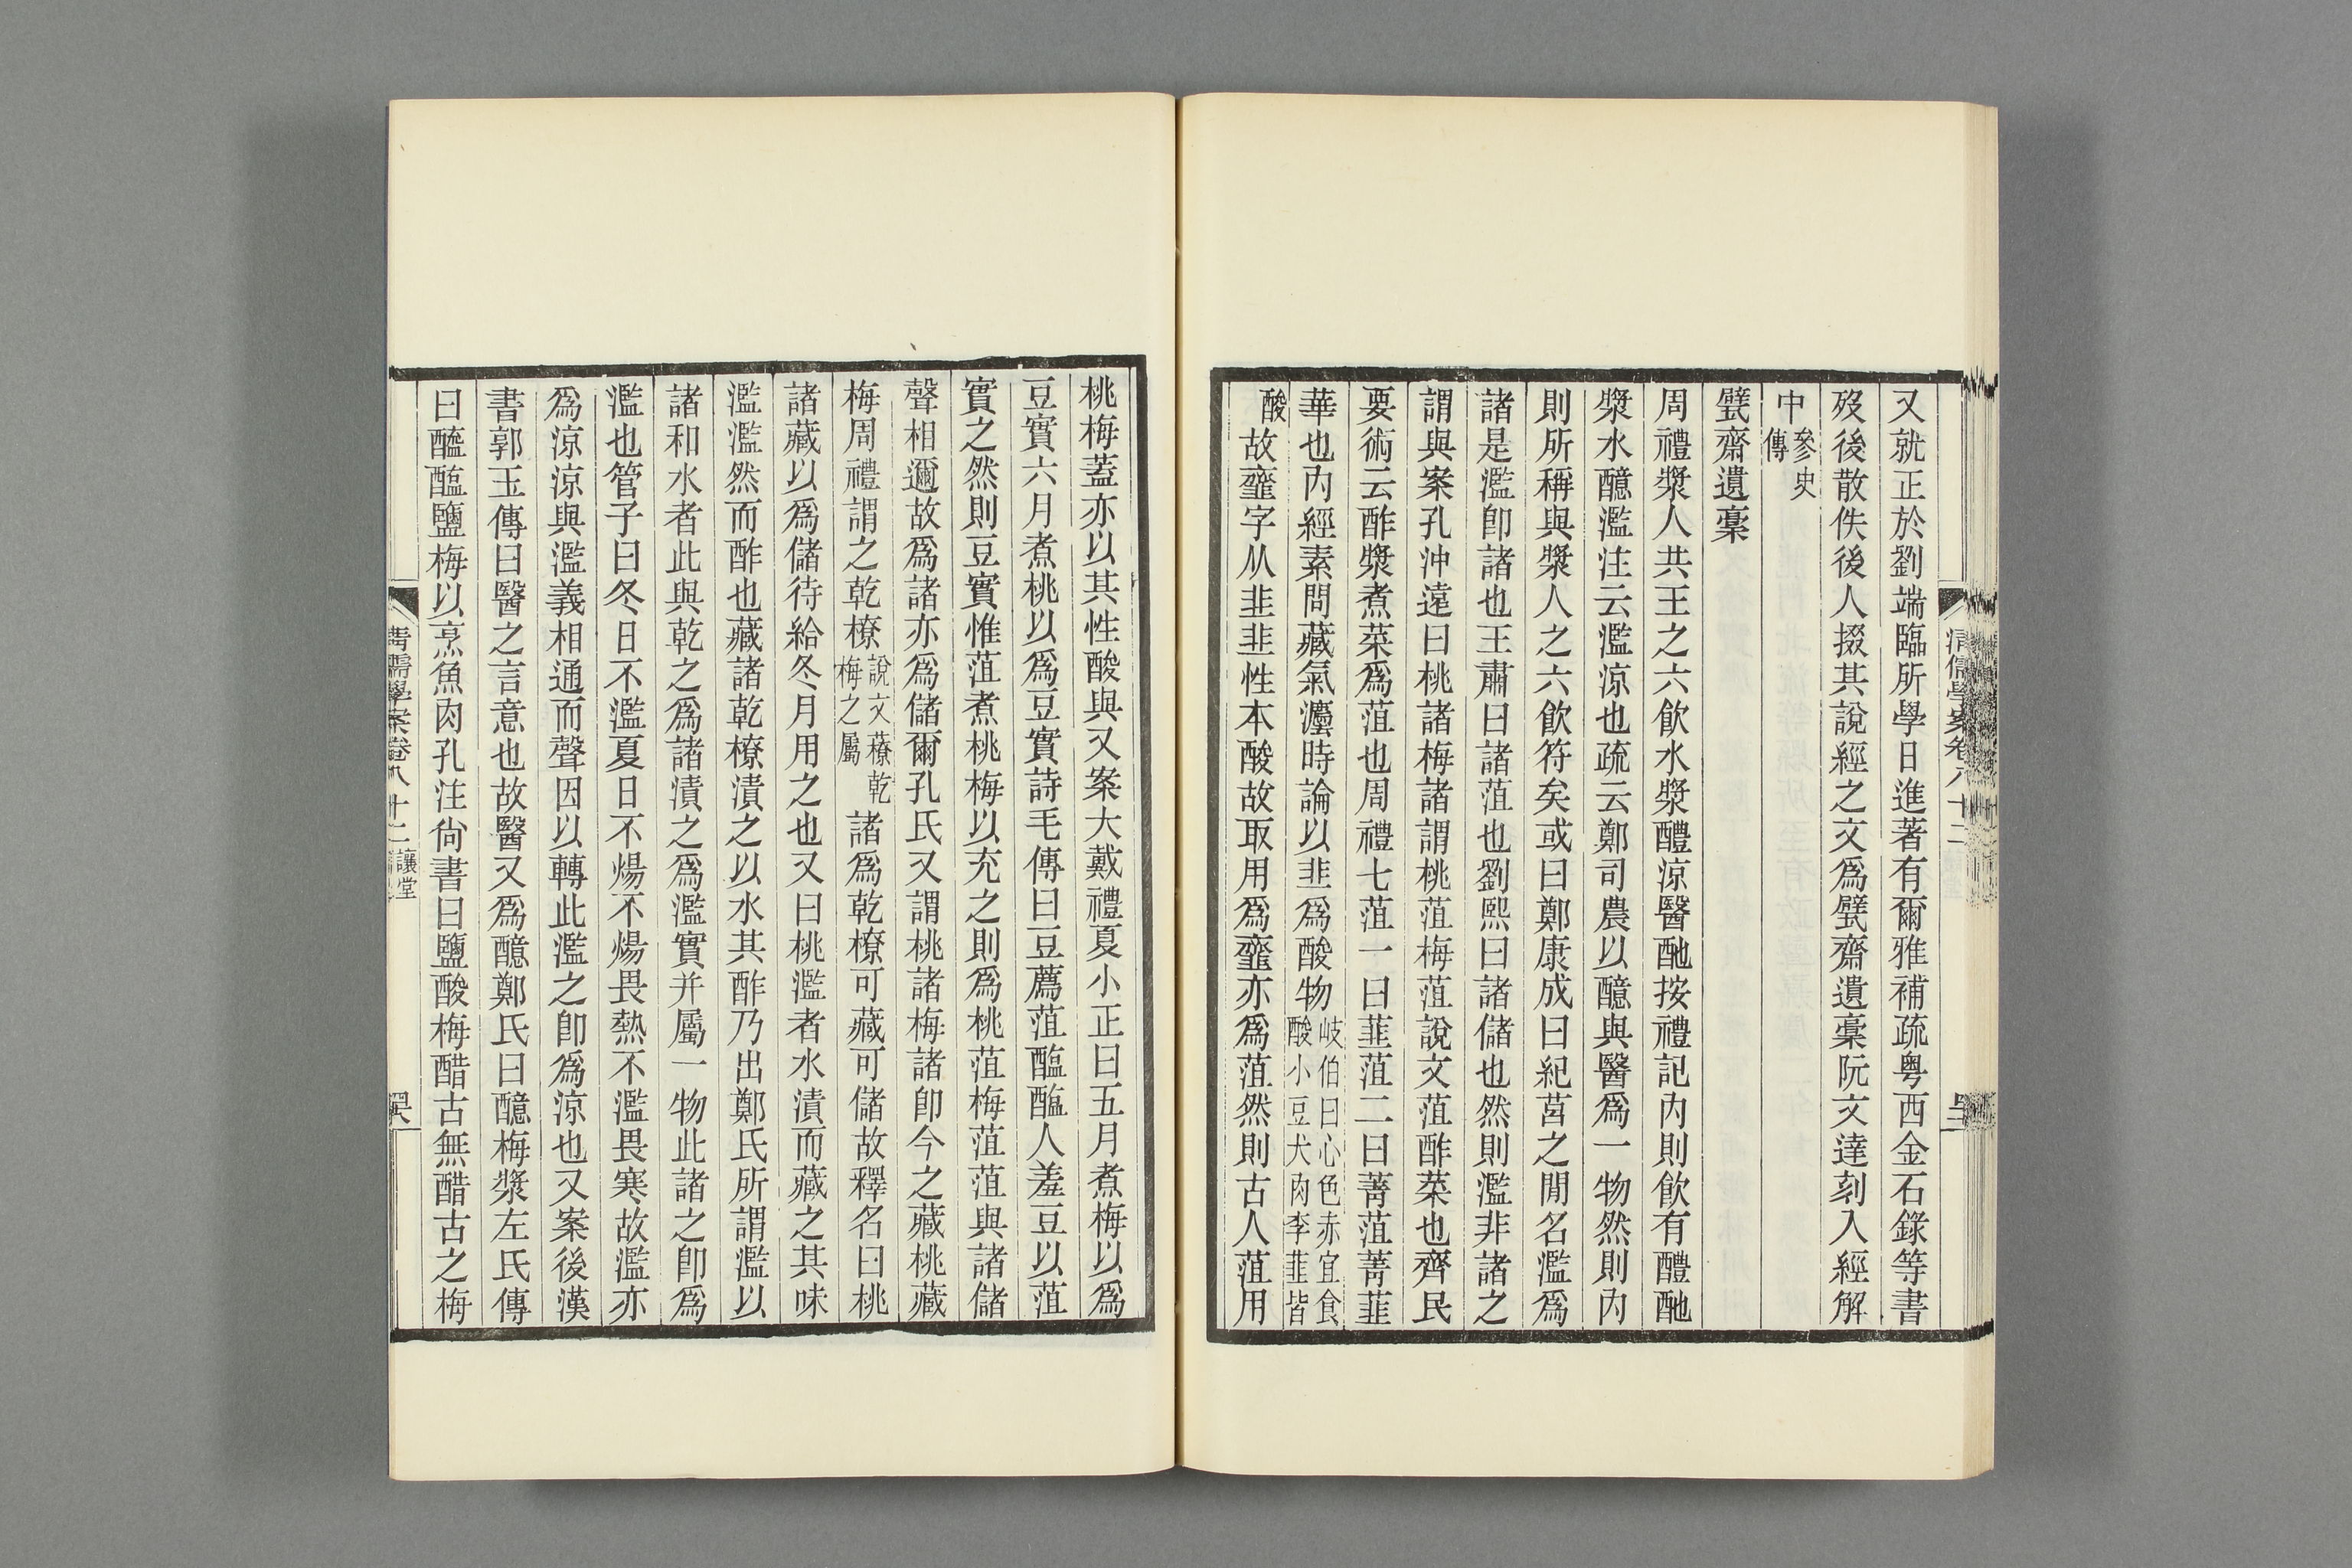 又就正於劉端臨所學日進著有爾雅補疏粤西金石錄等書
歿後散佚後人掇其說經之文爲甓齋遺稾阮文達刻入經解
中參史
傳
甓齋遺稾
周禮漿人共王之六飮水漿醴涼醫酏按禮記內則飮有醴酏
漿水醷濫注云濫涼也疏云鄭司農以醷與醫爲一物然則內
則所稱與漿人之六飮符矣或曰鄭康成曰紀莒之閒名濫爲
諸是濫卽諸也王肅曰諸菹也劉熙曰諸儲也然則濫非諸之
謂與案孔沖遠曰桃諸梅諸謂桃菹梅菹說文菹酢菜也齊民
要術云酢漿煮菜爲菹也周禮七菹一曰韮菹二曰菁菹菁韮
華也內經素問藏氣灋時論以韭爲酸物岐伯曰心色赤宜食
酸小豆犬肉李韭皆
酸故虀字从韭韭性本酸故取用爲虀亦爲菹然則古人菹用
清儒學案卷八十二
桃梅蓋亦以其性酸與又案大戴禮夏小正曰五月煮梅以爲
豆實六月煮桃以爲豆實詩毛傳曰豆薦菹醢醢人羞豆以菹
實之然則豆實惟菹煮桃梅以充之則爲桃菹梅菹菹與諸儲
聲相邇故爲諸亦爲儲爾孔氏又謂桃諸梅諸卽今之藏桃藏
梅周禮謂之乾橑說文䕩乾
梅之屬諸爲乾橑可藏可儲故釋名曰桃
諸藏以爲儲待給冬月用之也又曰桃濫者水漬而藏之其味
濫濫然而酢也藏諸乾橑漬之以水其酢乃出鄭氏所謂濫以
諸和水者此與乾之爲諸漬之爲濫實并屬一物此諸之卽爲
濫也管子曰冬日不濫夏日不煬不煬畏熱不濫畏寒故濫亦
爲涼涼與濫義相通而聲因以轉此濫之卽爲涼也又案後漢
書郭玉傳曰醫之言意也故醫又爲醷鄭氏曰醷梅漿左氏傳
曰醯醢鹽梅以烹魚肉孔注尙書曰鹽酸梅醋古無醋古之梅
清儒學案卷八十二
讓堂